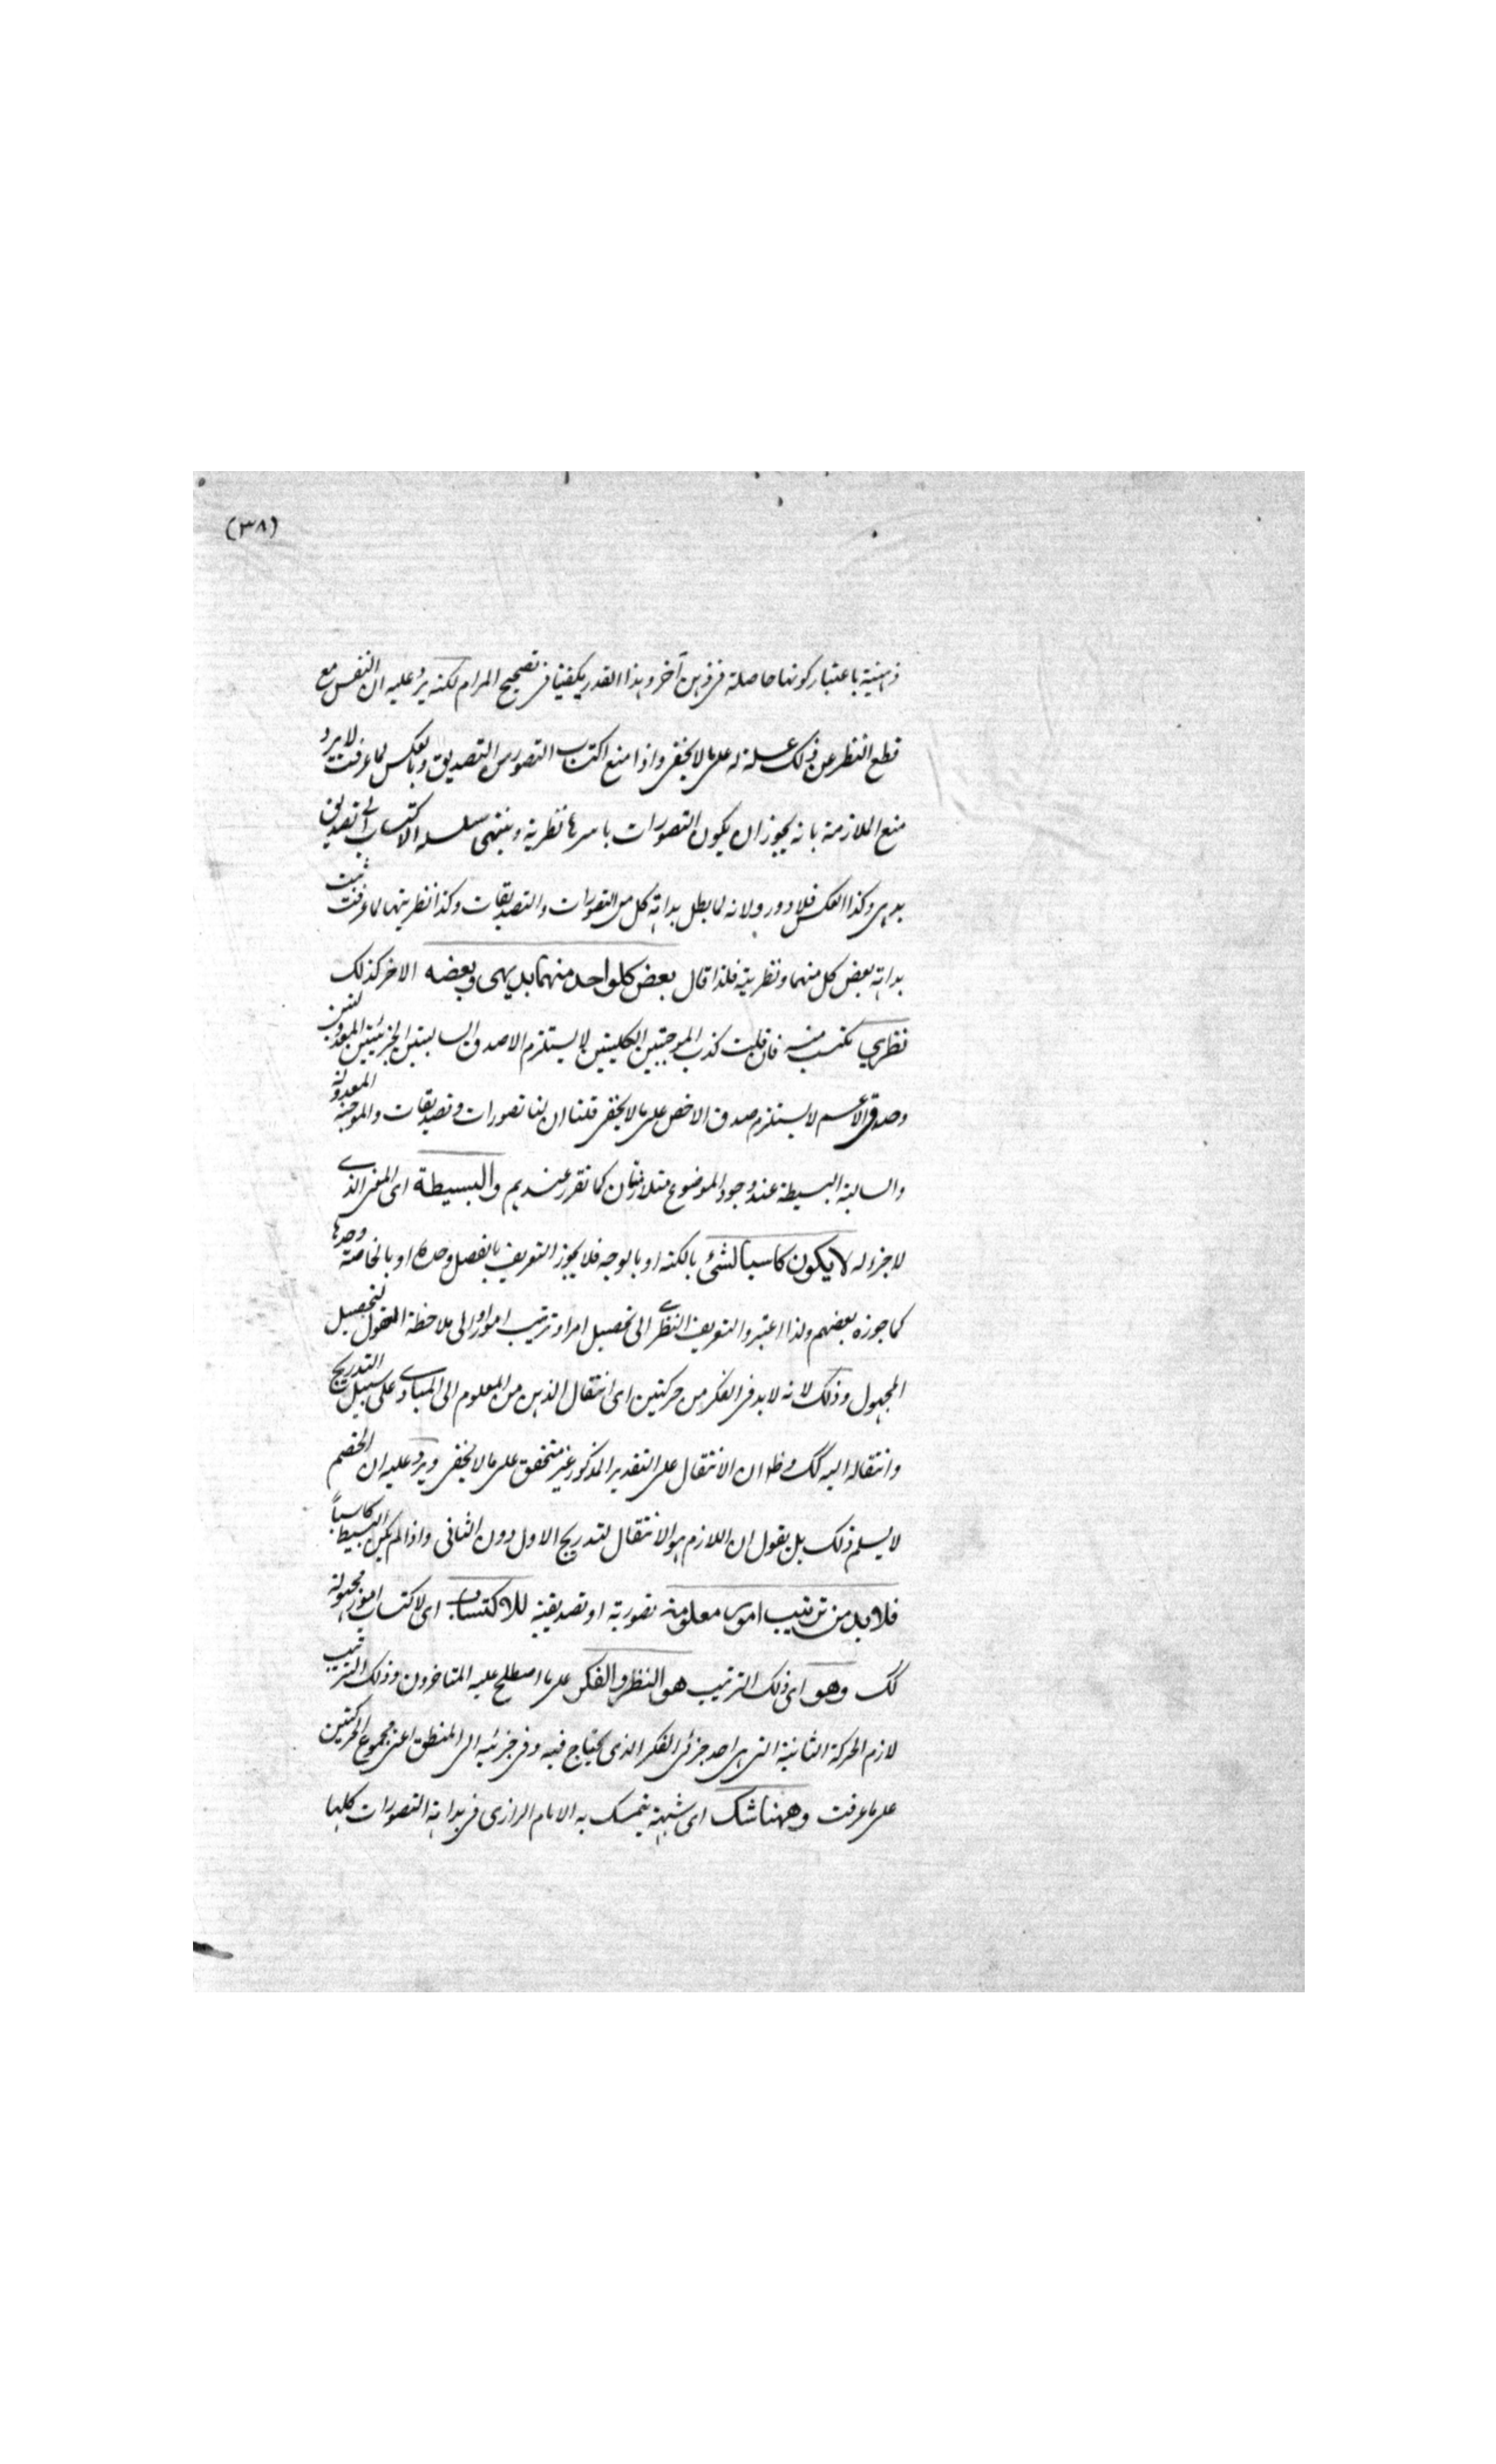 (٣٨)
ذهنية باعتبار كونها حاصلة في ذهن آخر وهذا القدر يكفينا في تصحيح المرام لكنه يرد عليه ان النفس مع
قطع النظر عن ذلك علة له على ما لا يخفى واذا منع اكتساب التصور من التصديق وبالعكس لما عرفت لا يرد
منع الملازمة بانه يجوز ان يكون التصورات باسرها نظرية وينتهى سلسلة الاكتساب الى تصديق
بديهي وكذا العكس فلا دور ولانه لما بطل بداهة كل من التصورات والتصديقات وكذا نظريتها لما عرفت ثبت
بداهة بعض كل منهما ونظريته فلذا قال بعض كل واحد منهما بديهى وبعضه الاخر كذلك
نظري مكتسب منه فان قلت كذب الموجبتين الكليتين لا يستلزم الا صدق السالبتين الجزئيتين
وصدق الاعم لا يستلزم صدق الاخص على ما لا يخفى قلنا ان لنا تصورات وتصديقات والموجبة المعدولة
والسالبة البسيطة عند وجود الموضوع متلازمتان كما تقرر عندهم والبسيطة اى المعنى الذي
لا جزء له لا يكون كاسبا لشئ بالكنه او بالوجه فلا يجوز التعريف بالفصل وحده او بالخاصة وحدها
كما جوزه بعضهم ولذا اعتبروا التعريف النظري الى تحصيل امر او ترتيب امور او الى ملاحظة المعقول لتحصيل
المجهول وذلك لانه لا بد في الفكر من حركتين اى انتقال الذهن من المعلوم الى المبادي على سبيل التدريج
وانتقاله اليه كك وظ ان الانتقال على التقدير المذكور غير متحقق على ما لا يخفى ويرد عليه ان الخصم
لا يسلم ذلك بل يقول ان اللازم هو الانتقال لتدريج الاول دون الثانى واذا لم يكن البسيط كاسباً
فلا بد من ترتيب امور معلومة تصورية او تصديقية للاكتساب اى لاكتساب امور مجهولة
كك وهو اى ذلك الترتيب هو النظر والفكر على ما اصطلح عليه المتاخرون وذلك الترتيب
لازم الحركة الثانية التى هى احد جزئى الفكر الذى يحتاج فيه وفى جزئيه الى المنطق اعنى مجموع الحركتين
على ما عرفت وههنا شك اى شبهة يتمسك به الامام الرازى فى بداهة التصورات كلها